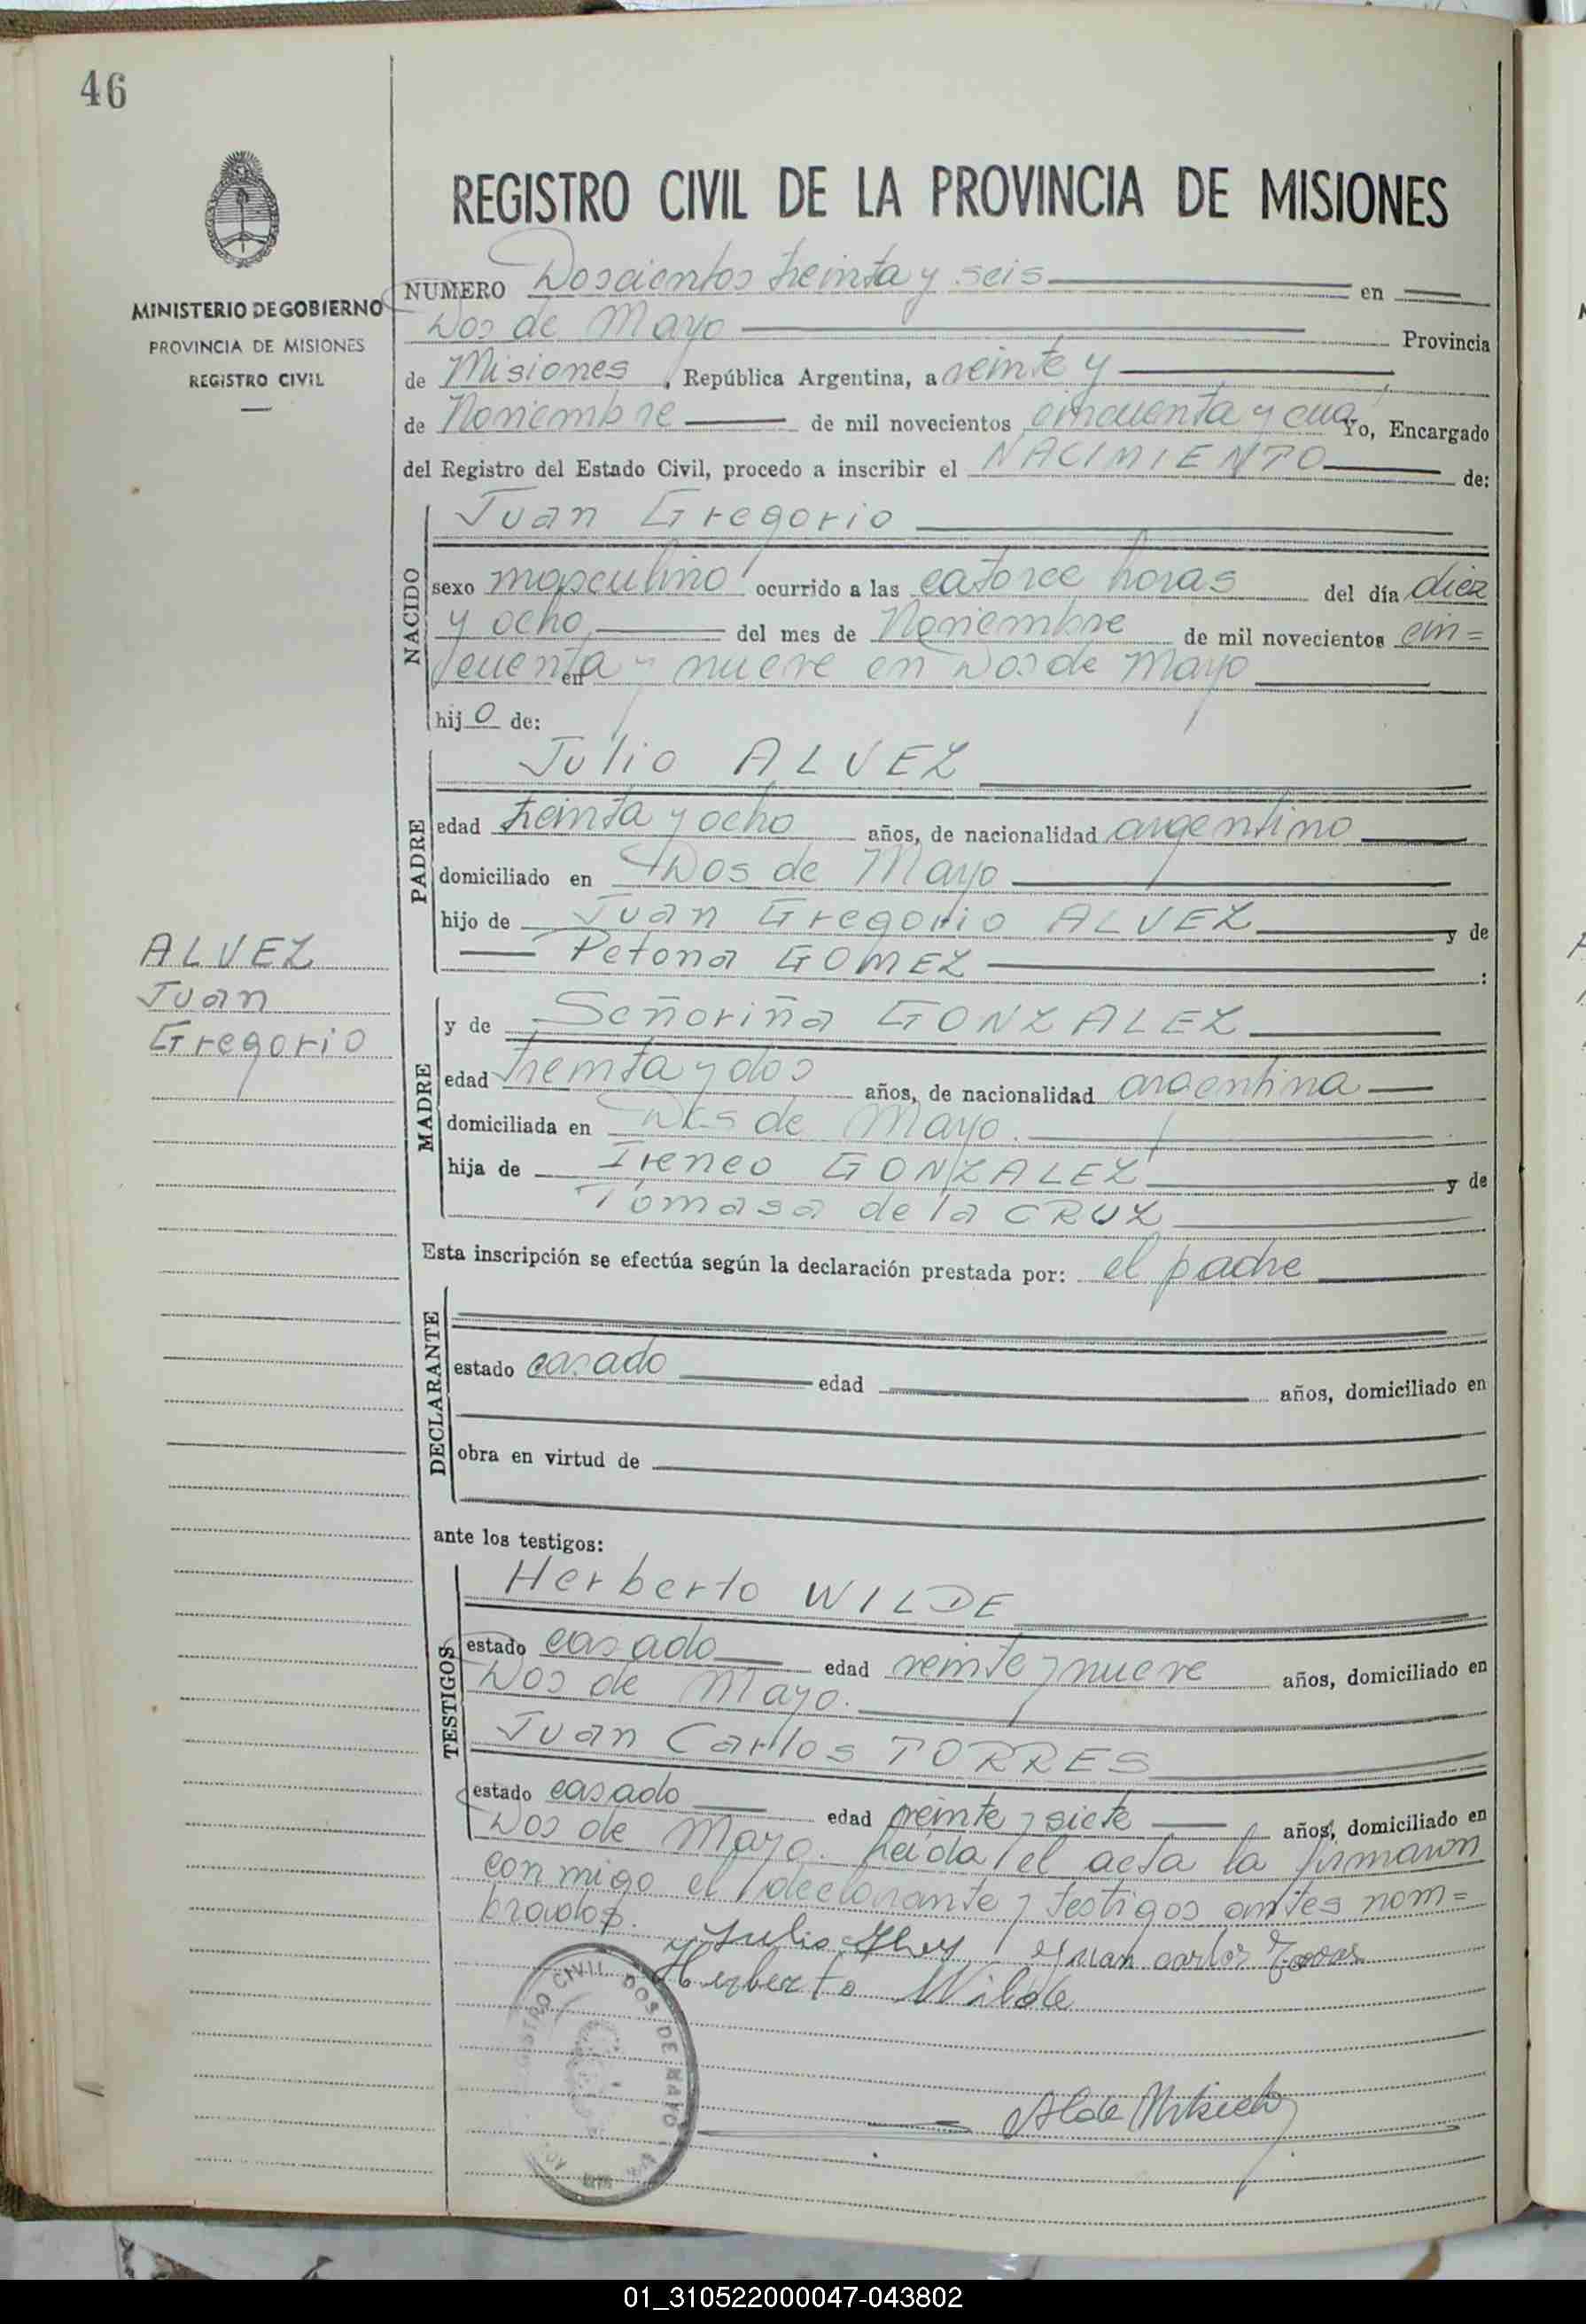 46
REGISTRO CIVIL DE LA PROVINCIA DE MISIONES
MINISTERIO DE GOBIERNO
PROVINCIA DE MISIONES
REGISTRO CIVIL
NUMERO Doscientos treinta y seis en
Dos de Mayo Provincia
de Misiones, República Argentina, a veinte y
de Noviembre de mil novecientos cincuenta y cua Yo, Encargado
del Registro del Estado Civil, procedo a inscribir el NACIMIENTO de:
NACIDO
Juan Gregorio
sexo masculino ocurrido a las catorce horas del día diez
y ocho del mes de Noviembre de mil novecientos cin=
cuenta y nueve en Dos de Mayo
en
hijo de:
PADRE
Julio ALVEZ
edad treinta y ocho años, de nacionalidad argentino
domiciliado en Dos de Mayo
hijo de Juan Gregorio ALVEZ y de
Petona GOMEZ :
ALVEZ
Juan
Gregorio
MADRE
y de Señoriña GONZALEZ
edad treinta y dos años, de nacionalidad argentina
domiciliada en Dos de Mayo.
hija de Ireneo GONZALEZ y de
Tomasa de la CRUZ
Esta inscripción se efectúa según la declaración prestada por: el padre
DECLARANTE
estado casado edad años, domiciliado en
obra en virtud de
ante los testigos:
TESTIGOS
Herberto WILDE
estado casado edad veinte y nueve años, domiciliado en
Dos de Mayo.
Juan Carlos TORRES
estado casado edad veinte y siete años, domiciliado en
Dos de Mayo. Leida el acta la firmaron
conmigo el declarante y testigos antes nom=
brados.
Julio Juan carlos Torres
Herberto Wilde
REGISTRO CIVIL DOS DE MAYO
01_310522000047-043802